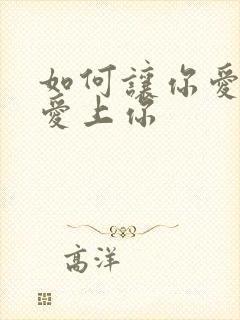 如何讓你愛
愛上你
高洋